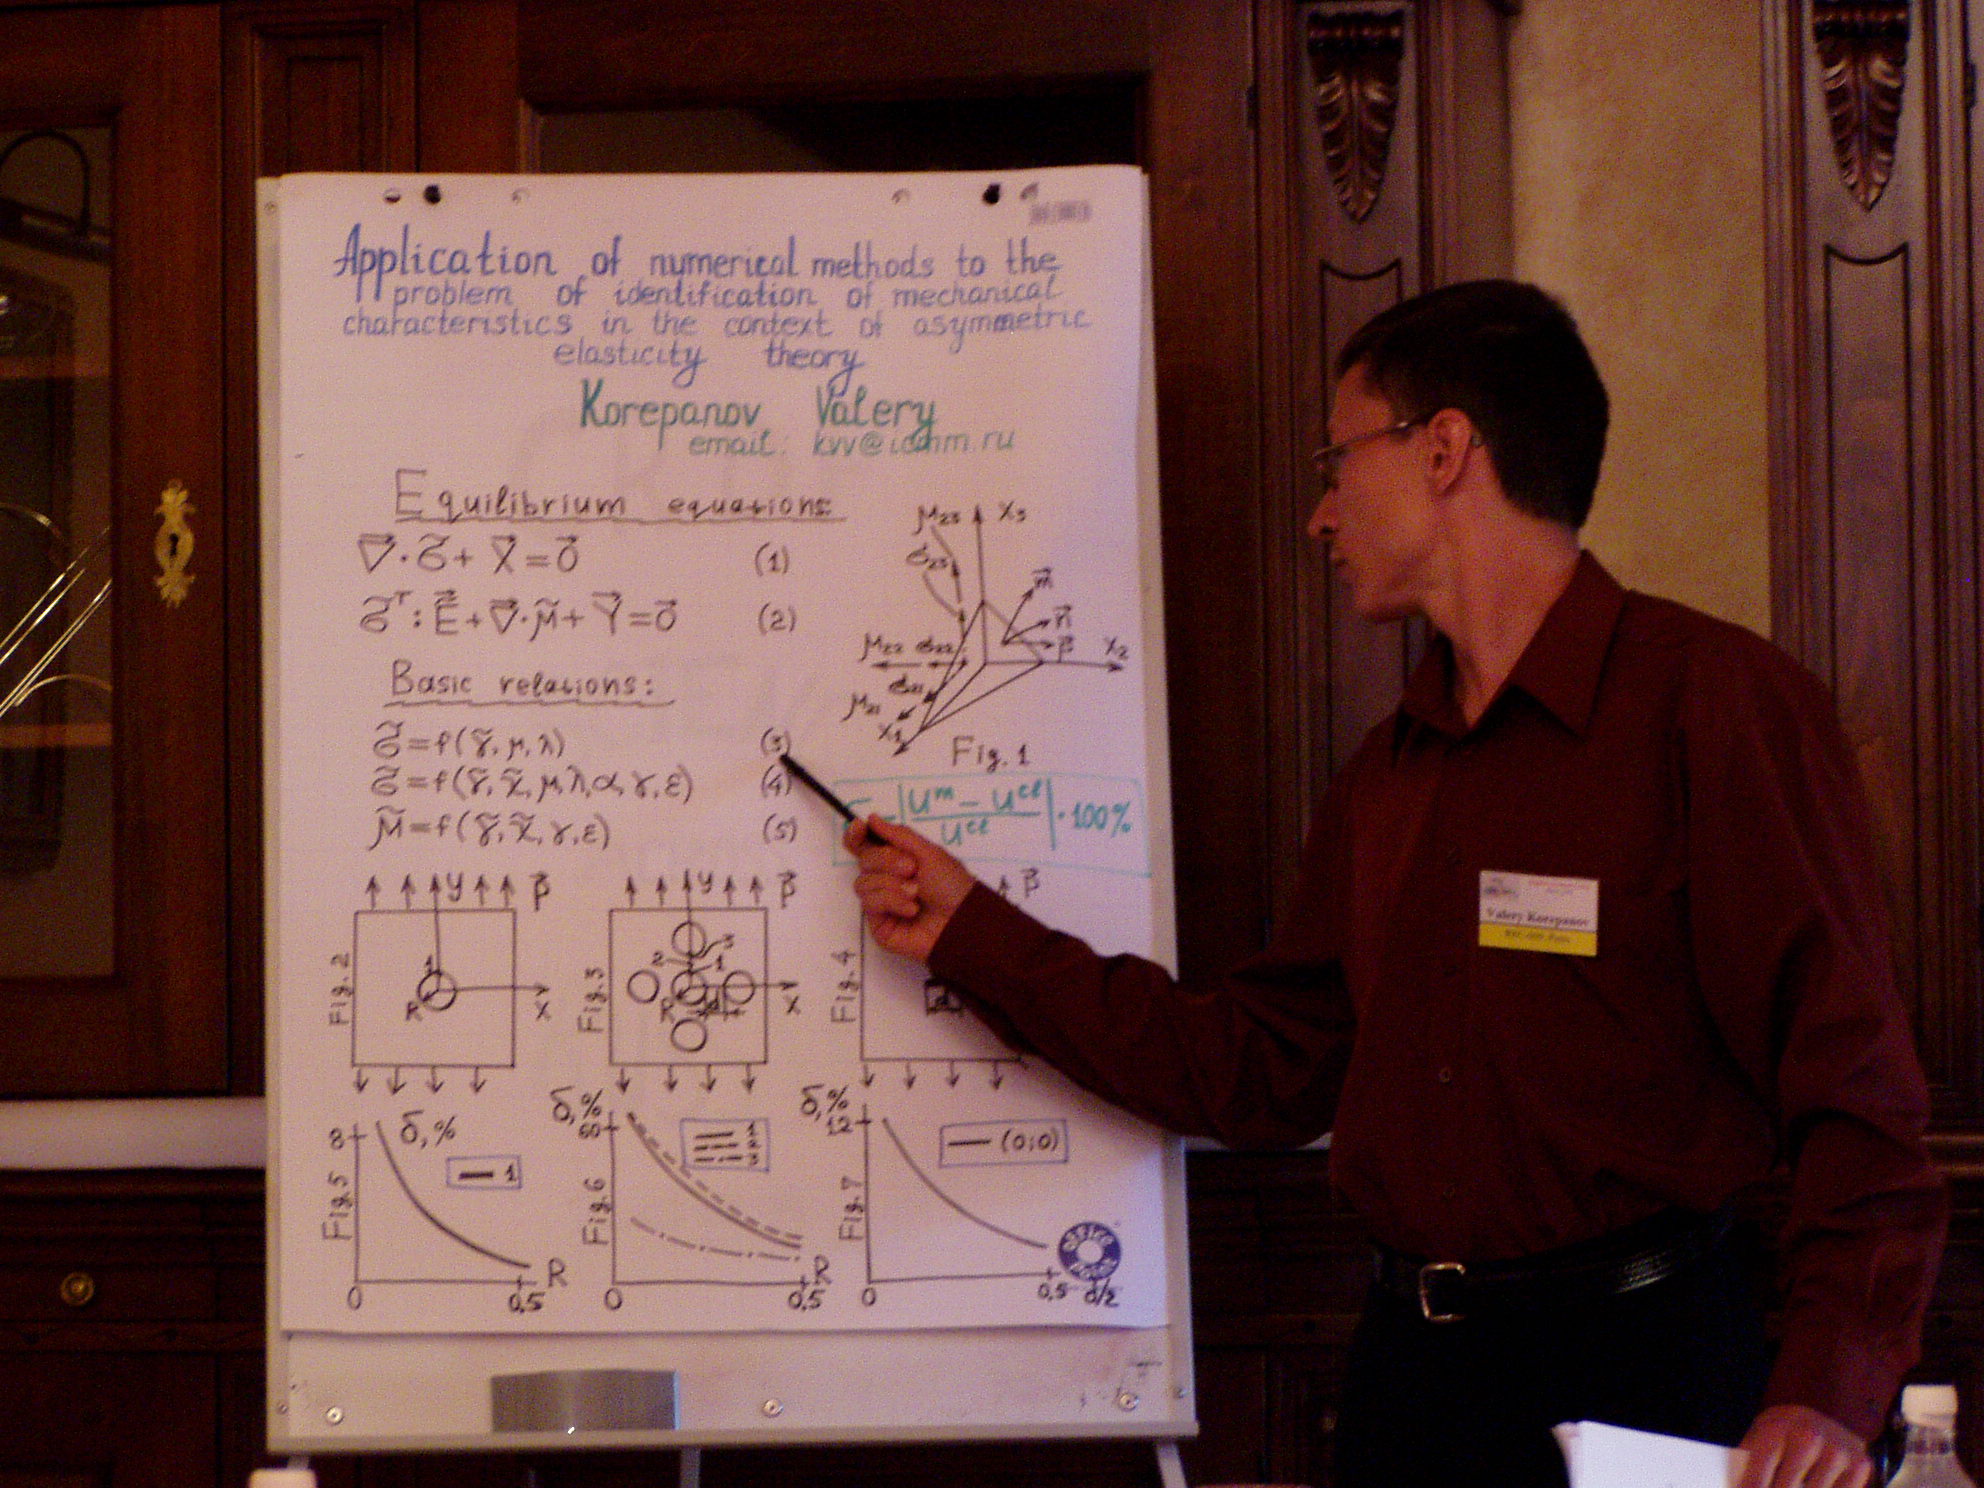 Application of numerical methods to the
problem of identification of mechanical
characteristics in the context of asymmetric
elasticity theory
Korepanov Valery
email: kvv@icmm.ru
Equilibrium equations:
∇⃗·σ̃ + X⃗ = 0⃗ (1)
σ̃ᵀ : E⃗ + ∇⃗·μ̃ + Y⃗ = 0⃗ (2)
Basic relations:
σ̃ = f(γ̃, μ, λ) (3)
σ̃ = f(γ̃, χ̃, μ, λ, α, γ, ε) (4)
μ̃ = f(γ̃, χ̃, γ, ε) (5)
μ₂₃ X₃
σ₂₃
n⃗
μ₂₂ σ₂₂ X₂
σ₂₁
μ₂₁
X₁
Fig. 1
|uᵐ - uᶜˡ / uᶜˡ| · 100%
y p⃗
1
R
x
Fig. 2
y p⃗
2 3
1
R d
x
Fig. 3
p⃗
d
Fig. 4
8 δ, %
1
Fig. 5
0 0,5 R
δ, %
8
Fig. 6
0 0,5 R
δ, %
12
(0;0)
Fig. 7
0 0,5 d/2
OFFICE
Valery Korepanov